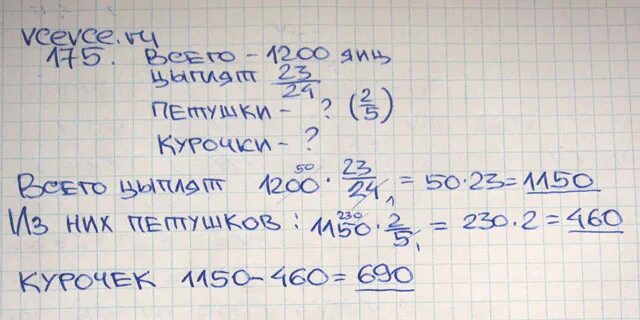 vcevce.ry
175. Всего - 1200 яиц
цыплят 23/24
Петушки - ? (2/5)
Курочки - ?
Всего цыплят 1200 50 · 23/24 1 = 50·23 = 1150
Из них петушков: 1150 230 · 2/5 1 = 230·2 = 460
Курочек 1150-460 = 690